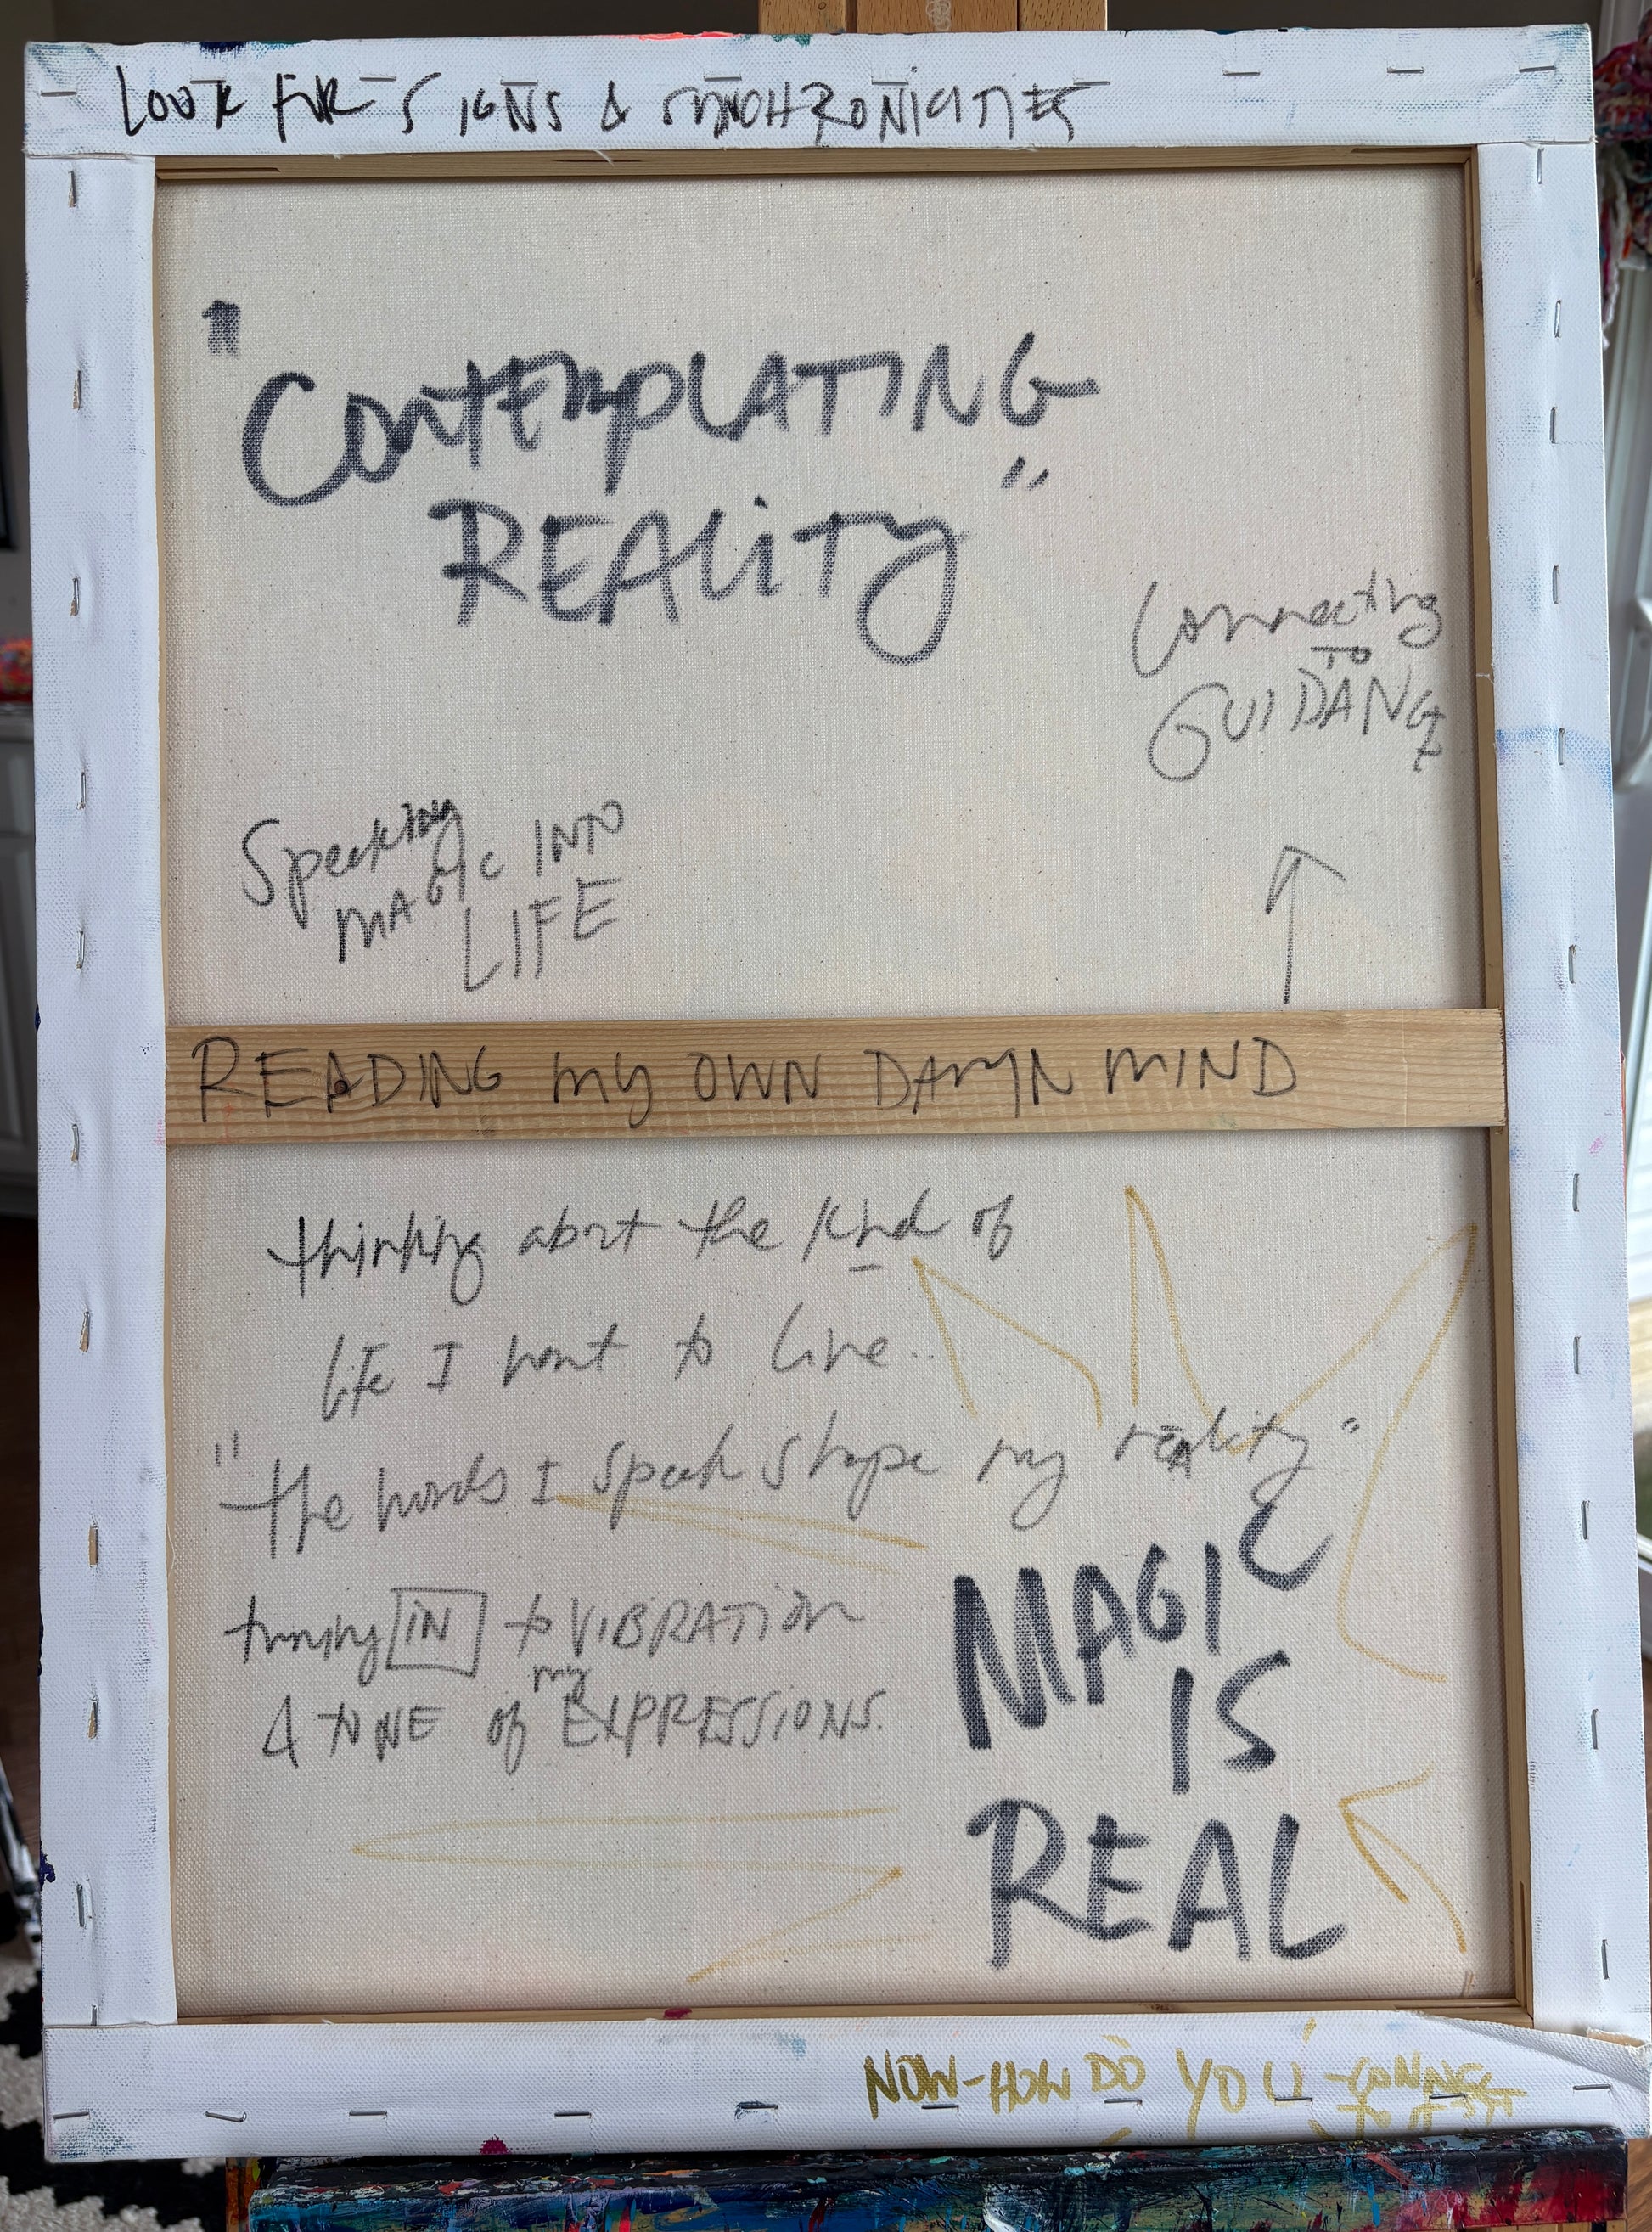 LOOK FOR SIGNS & SYNCHRONICITIES
"CONTEMPLATING
REALITY"
Connecting
TO
GUIDANCE
Speaking
MAGIC INTO
LIFE
READING MY OWN DAMN MIND
thinking about the kind of
life I want to live..
"the words I speak shape my reality"
tuning IN to VIBRATION
& TONE of my EXPRESSIONS.
MAGIC
IS
REAL
NOW-HOW DO YOU CONNECT
TO IT